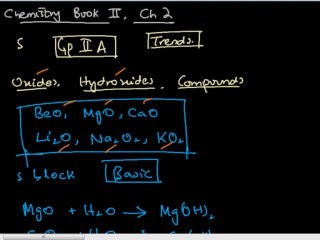 Chemistry Book II, Ch 2
S Gp II A Trends.
Oxides, Hydroxides, Compounds
BeO, MgO, CaO
Li₂O, Na₂O₂, KO₂
S block Basic
MgO + H₂O → Mg(OH)₂